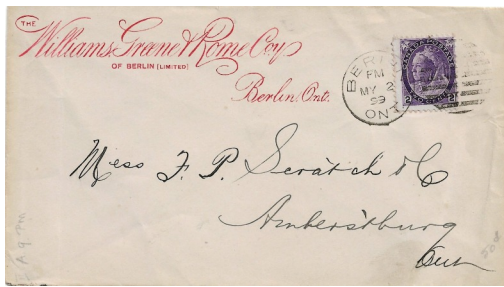 THE
Williams, Greene & Rome Coy
OF BERLIN (LIMITED)
Berlin, Ont.
BERLIN
PM
MY 2
99
ONT
2 2
Mess F. P. Scratch & C
Amherstburg
Ont